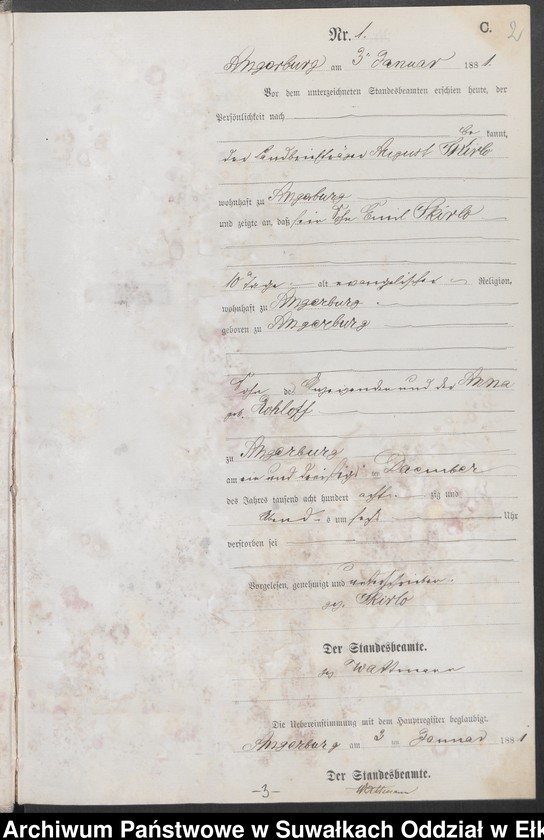 C. 2
Nr. 1.
Angerburg am 3n Januar 1881.
Vor dem unterzeichneten Standesbeamten erschien heute, der
Persönlichkeit nach
be kannt,
der Landbriefträger August Skirlo
wohnhaft zu Angerburg
und zeigte an, daß sein Sohn Emil Skirlo
10 Tage alt evangelischer Religion,
wohnhaft zu Angerburg
geboren zu Angerburg
Sohn des Anzeigenden und der Anna
geb. Rohloff
zu Angerburg
am ein und dreißigst en Dezember
des Jahres tausend acht hundert acht zig und
Abend s um sechs Uhr
verstorben sei
Vorgelesen, genehmigt und unterschrieben.
gez. Skirlo
Der Standesbeamte.
gez. Wattmann
Die Uebereinstimmung mit dem Hauptregister beglaubigt.
Angerburg am 3 ten Januar 1881
Der Standesbeamte.
Wattmann
-3-
Archiwum Państwowe w Suwałkach Oddział w Ełk